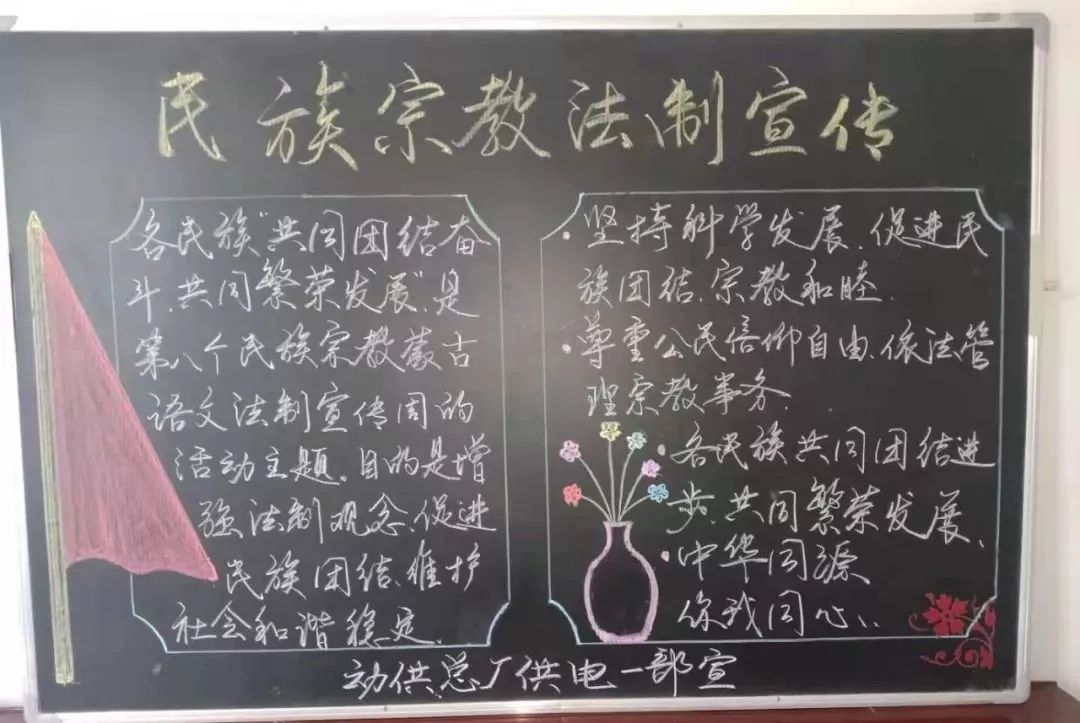 民族宗教法制宣传
各民族“共同团结奋
斗、共同繁荣发展”是
第八个民族宗教蒙古
语文法制宣传周的
活动主题。目的是增
强法制观念、促进
民族团结、维护
社会和谐稳定。
· 坚持科学发展、促进民
族团结、宗教和睦.
· 尊重公民信仰自由、依法管
理宗教事务.
· 各民族共同团结进
步、共同繁荣发展、
· 中华同源
你我同心..
动供总厂供电一部宣